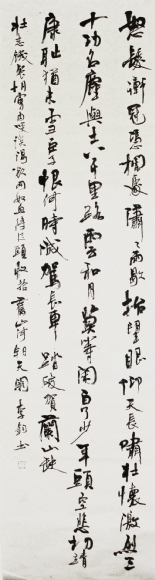 怒髮衝冠憑欄處瀟瀟雨歇抬望眼仰天長嘯壯懷激烈三
十功名塵與土八千里路雲和月莫等閑白了少年頭空悲切靖
康耻猶未雪臣子恨何時滅駕長車踏破賀蘭山缺
壯志饑餐胡虜肉笑談渴飲匈奴血待從頭收拾舊山河朝天闕